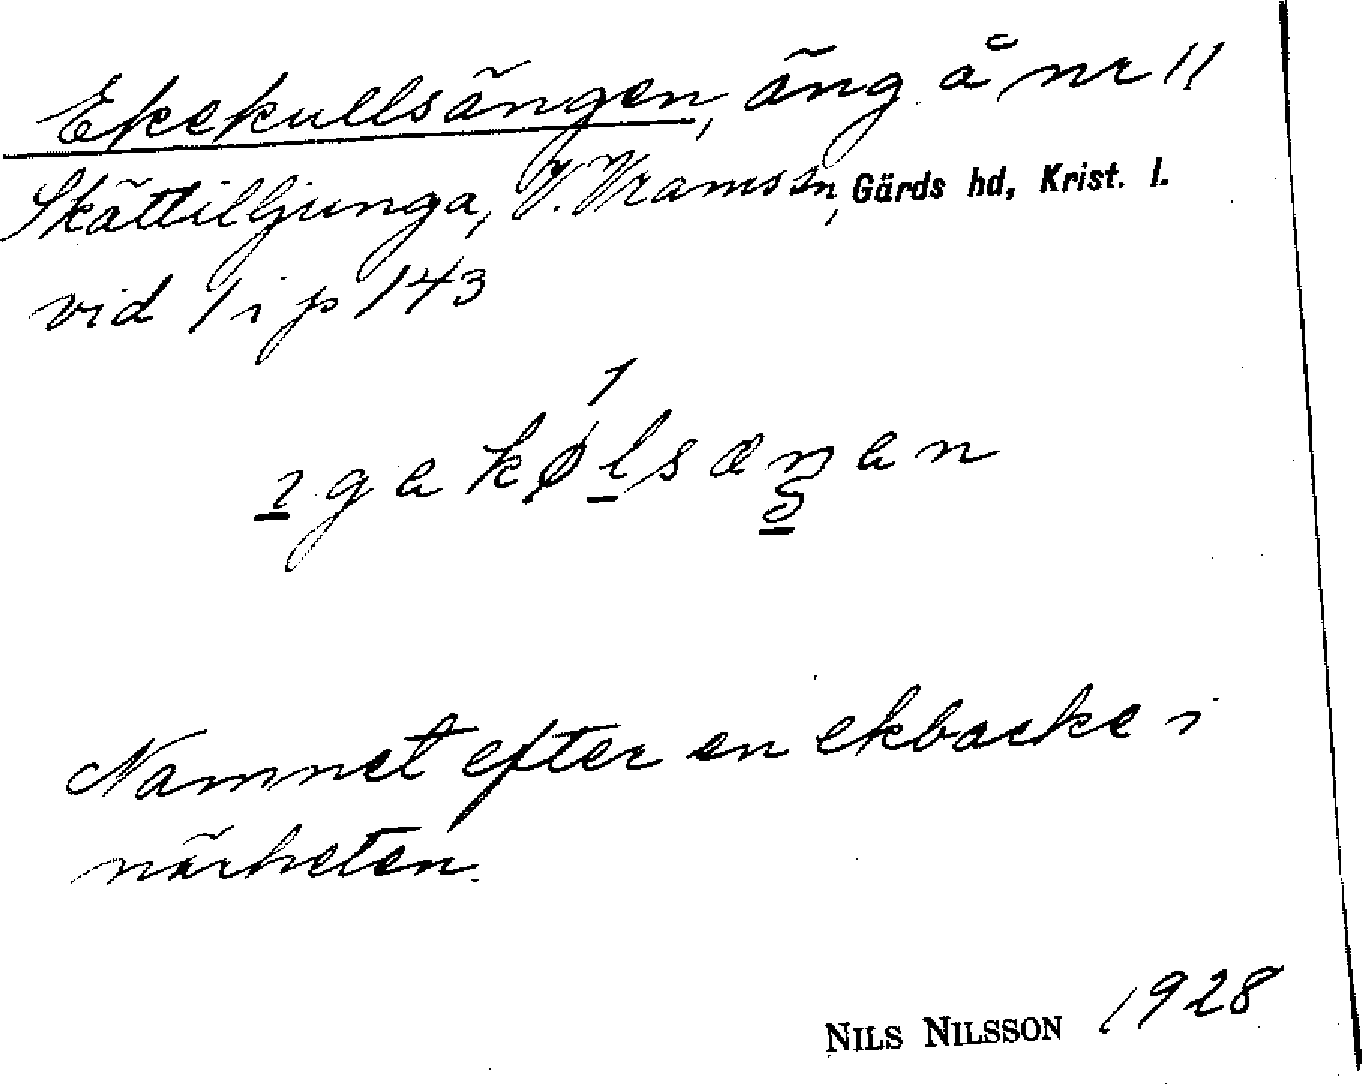 Ekekullsängen, äng å nr 11
Skättilljunga, V. Vrams sn, Gärds hd, Krist. l.
vid 1 i p 143
Namnet efter en ekbacke i
närheten.
NILS NILSSON 1928